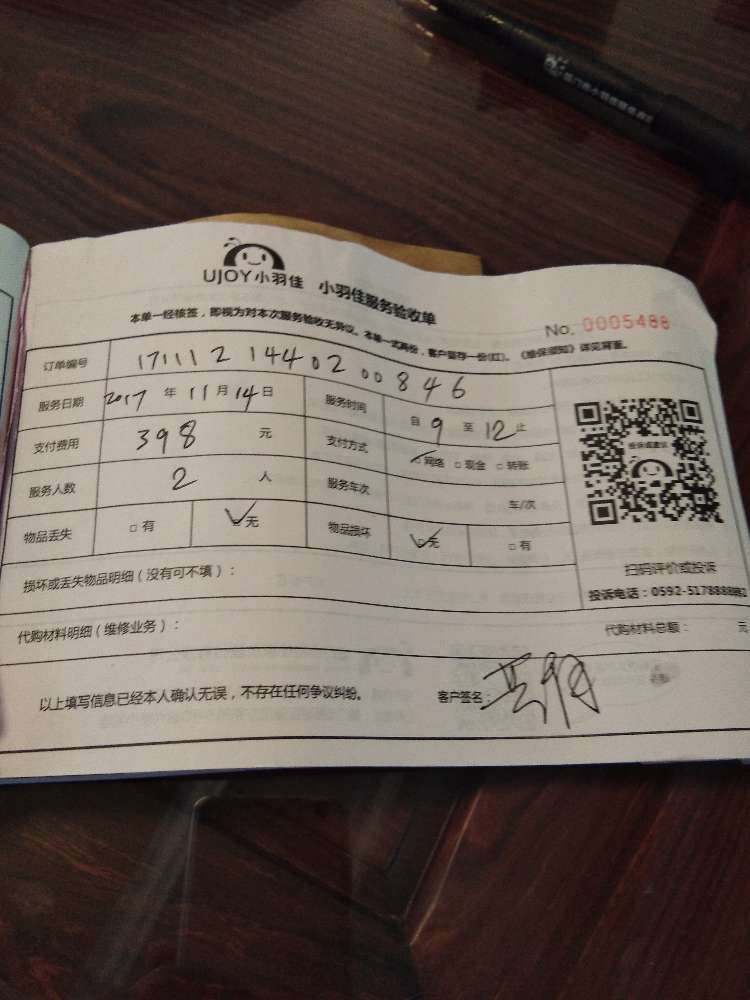 UJOY小羽佳 小羽佳服务验收单
本单一经核签，即视为对本次服务验收无异议。本单一式两份，客户留存一份(红)。《维保须知》详见背面。
No. 0005488
订单编号 1711121440200846
服务日期 2017 年 11 月 14 日 服务时间 自 9 至 12 止
支付费用 398 元 支付方式 网络 现金 转账
服务人数 2 人 服务车次 车/次
物品丢失 有 无 物品损坏 无 有
扫码评价或投诉
损坏或丢失物品明细（没有可不填）：
投诉电话：0592-5178888
代购材料明细（维修业务）： 代购材料总额： 元
以上填写信息已经本人确认无误，不存在任何争议纠纷。 客户签名：